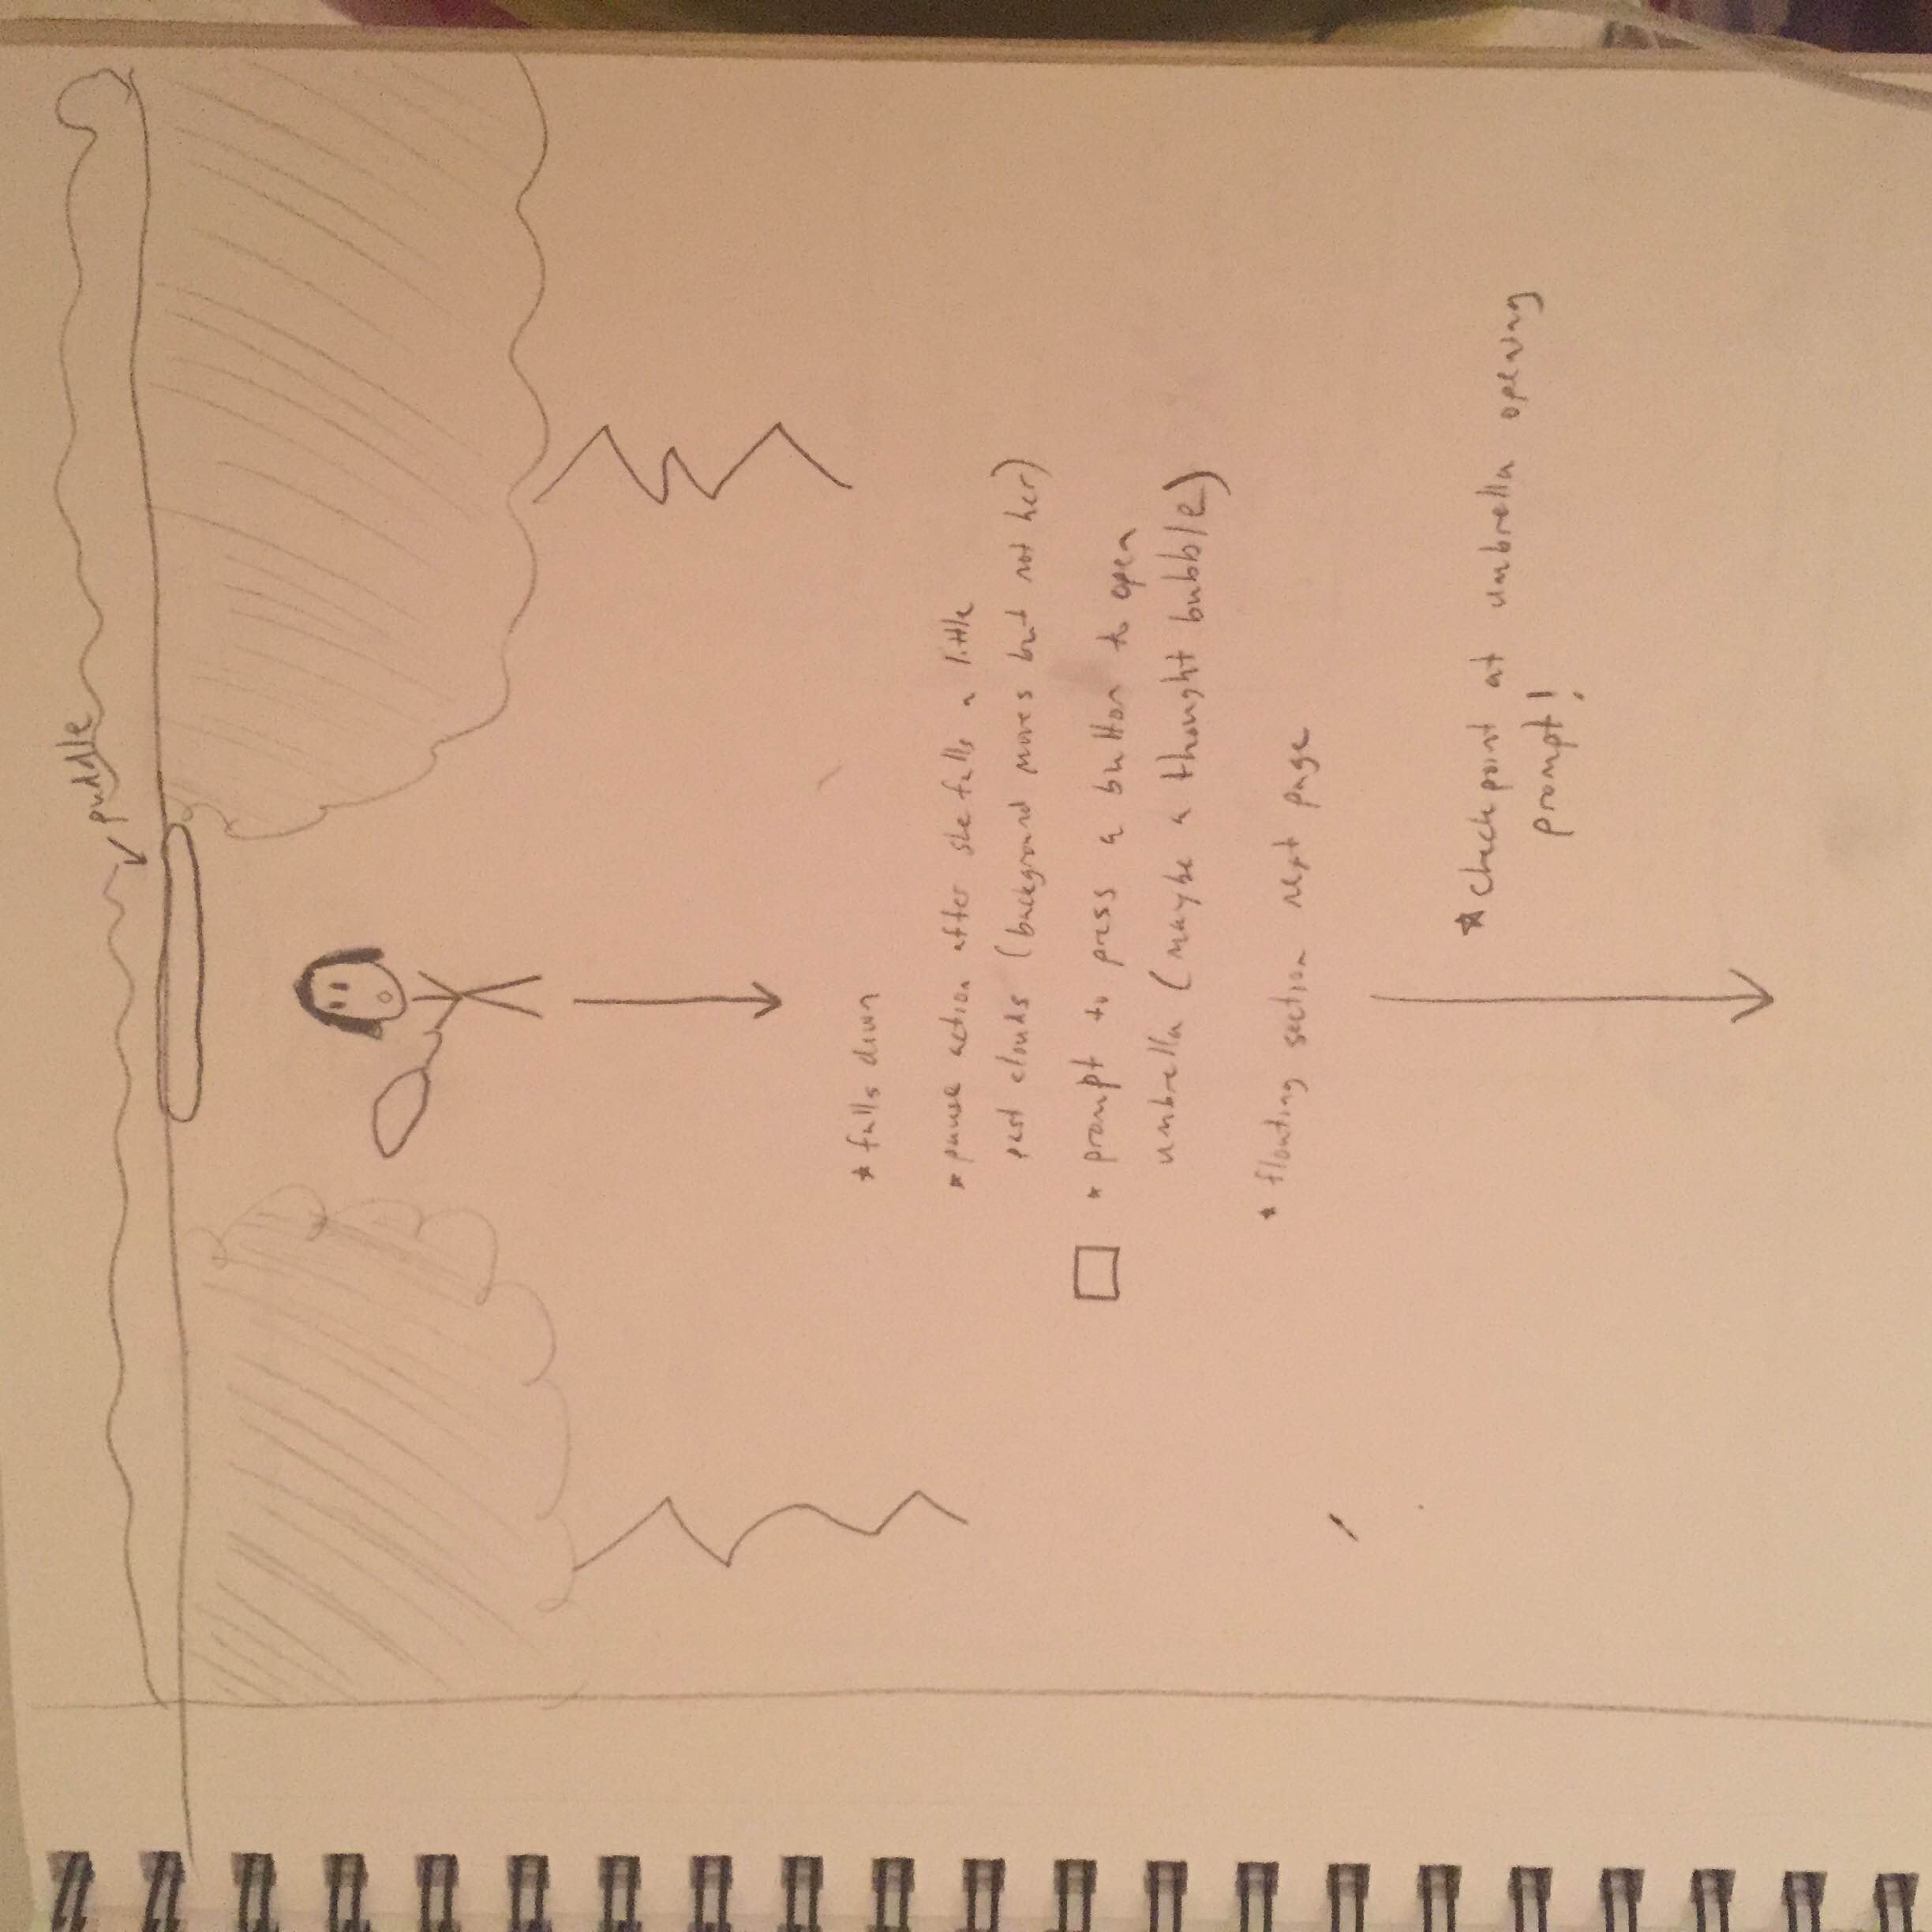 puddle
* falls down
* pause action after she falls a little
past clouds (background moves but not her)
* prompt to press a button to open
umbrella (maybe a thought bubble)
* floating section next page
* checkpoint at umbrella opening
prompt!